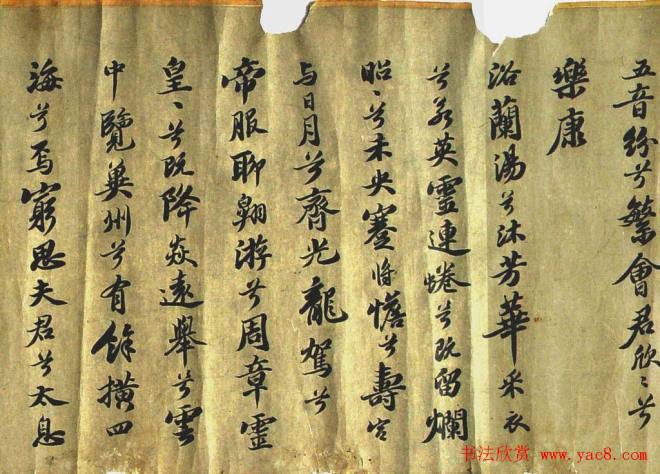 五音纷兮繁會君欣〻兮
樂康
浴蘭湯兮沐芳華采衣
兮若英靈連蜷兮既留爛
昭〻兮未央蹇將憺兮壽宮
与日月兮齊光龍駕兮
帝服聊翱游兮周章靈
皇〻兮既降猋遠舉兮雲
中覽冀州兮有餘横四
海兮焉窮思夫君兮太息
书法欣赏 www.yac8.com